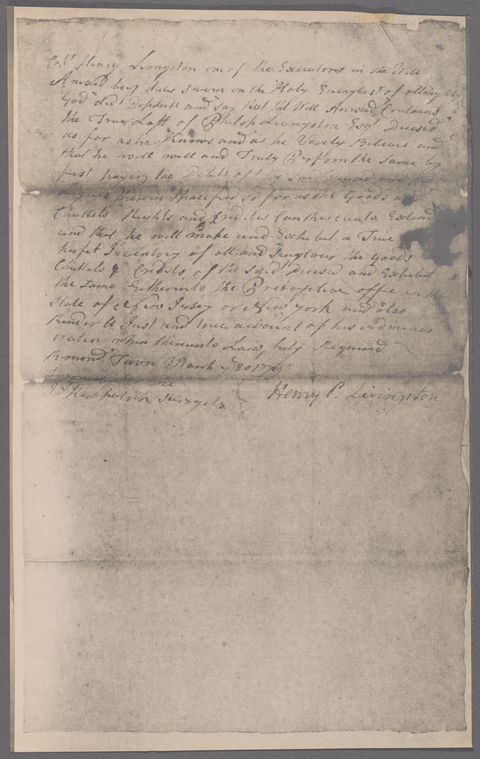 Coll Henry Livingston one of the Executors in the Will
Anexed being duly sworn on the Holy Evangelist of allmighty
God did depose and say that the Will Anexed Contains
the True Last of Philip Livingston Esqr Deceased
as far as he Knows and as he Verily Blieves and
that he will well and Truly Perform the Same by
first paying the Debts of the Deceased and the
Legacies therein Specified so far as the Goods and
Chattels Rights and Credits Can thereunto Extend
and that he will make and Exhibit a True
Perfit Inventory of all and Singlous the Goods
Chattels & Credits of the said Deceased and Exhibit
the same into the Prerogative office in the
State of New Jersey or New York and also
Render A Just and true account of his adminis
tration when thereunto Lawfully Required
Town March 20 17
me
Kirkpatrick Surrogate Henry P. Livingston